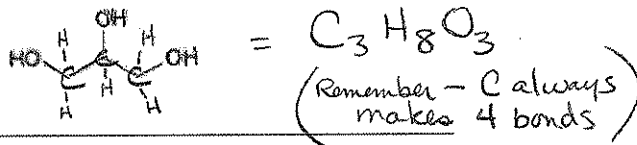 OH
H H
HO C C C OH
H H H
= C3H8O3
(Remember - C always
makes 4 bonds)